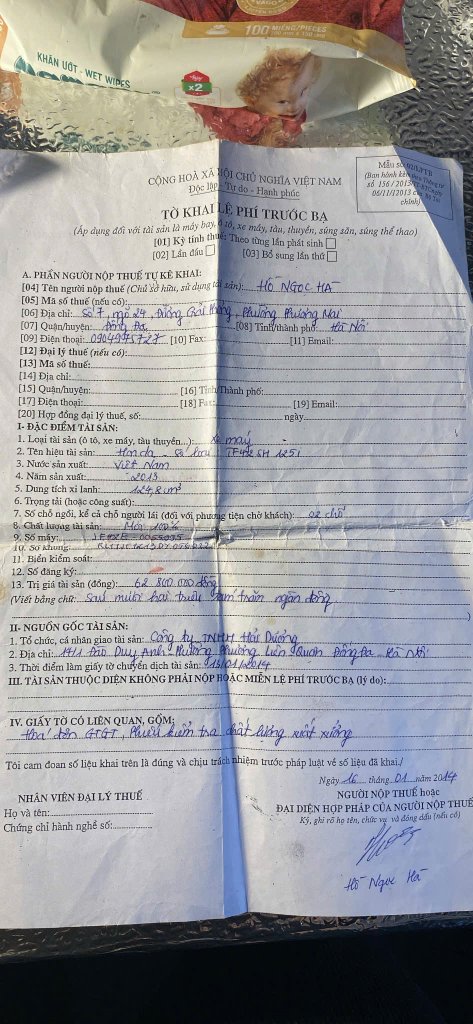 VAGO
100 MIẾNG/PIECES
KHĂN ƯỚT - WET WIPES
x2
Mẫu số 02/LPTB
(Ban hành kèm theo Thông tư
số 156/2013/TT-BTC ngày
06/11/2013 của Bộ Tài
chính)
CỘNG HOÀ XÃ HỘI CHỦ NGHĨA VIỆT NAM
Độc lập - Tự do - Hạnh phúc
TỜ KHAI LỆ PHÍ TRƯỚC BẠ
(Áp dụng đối với tài sản là máy bay, ô tô, xe máy, tàu, thuyền, súng săn, súng thể thao)
[01] Kỳ tính thuế: Theo từng lần phát sinh
[02] Lần đầu [03] Bổ sung lần thứ
A. PHẦN NGƯỜI NỘP THUẾ TỰ KÊ KHAI:
[04] Tên người nộp thuế (Chủ sở hữu, sử dụng tài sản): Hồ NGỌC HÀ
[05] Mã số thuế (nếu có):
[06] Địa chỉ: Số 7, ngõ 24, Đặng Phường Phương Mai
[07] Quận/huyện: Đống Đa [08] Tỉnh/thành phố: Hà Nội
[09] Điện thoại: 0904975727 [10] Fax: [11] Email:
[12] Đại lý thuế (nếu có):
[13] Mã số thuế:
[14] Địa chỉ:
[15] Quận/huyện: [16] Tỉnh/Thành phố:
[17] Điện thoại: [18] Fax: [19] Email:
[20] Hợp đồng đại lý thuế, số: ngày
I- ĐẶC ĐIỂM TÀI SẢN:
1. Loại tài sản (ô tô, xe máy, tàu thuyền...): xe máy
2. Tên hiệu tài sản: Honda - Số loại: JF42E SH 125i
3. Nước sản xuất: Việt Nam
4. Năm sản xuất: 2013
5. Dung tích xi lanh: 124,8 cm³
6. Trọng tải (hoặc công suất):
7. Số chỗ ngồi, kể cả chỗ người lái (đối với phương tiện chở khách): 02 chỗ
8. Chất lượng tài sản: Mới 100%
9. Số máy: JF42E - 0065035
10. Số khung:
11. Biển kiểm soát:
12. Số đăng ký:
13. Trị giá tài sản (đồng): 62 800 000 đồng
(Viết bằng chữ: Sáu mươi hai triệu tám trăm ngàn đồng
)
II- NGUỒN GỐC TÀI SẢN:
1. Tổ chức, cá nhân giao tài sản: Công ty TNHH Hải Dương
2. Địa chỉ: Đào Duy Anh Phường Phương Liên Quận Đống Đa Hà Nội
3. Thời điểm làm giấy tờ chuyển dịch tài sản: 15/01/2014
III. TÀI SẢN THUỘC DIỆN KHÔNG PHẢI NỘP HOẶC MIỄN LỆ PHÍ TRƯỚC BẠ (lý do):
IV. GIẤY TỜ CÓ LIÊN QUAN, GỒM:
Hoá đơn GTGT, Phiếu kiểm tra chất lượng xuất xưởng
Tôi cam đoan số liệu khai trên là đúng và chịu trách nhiệm trước pháp luật về số liệu đã khai./
Ngày 16 tháng 01 năm 2014
NHÂN VIÊN ĐẠI LÝ THUẾ
NGƯỜI NỘP THUẾ hoặc
Họ và tên:
ĐẠI DIỆN HỢP PHÁP CỦA NGƯỜI NỘP THUẾ
Chứng chỉ hành nghề số:
Ký, ghi rõ họ tên, chức vụ và đóng dấu (nếu có)
Hồ Ngọc Hà